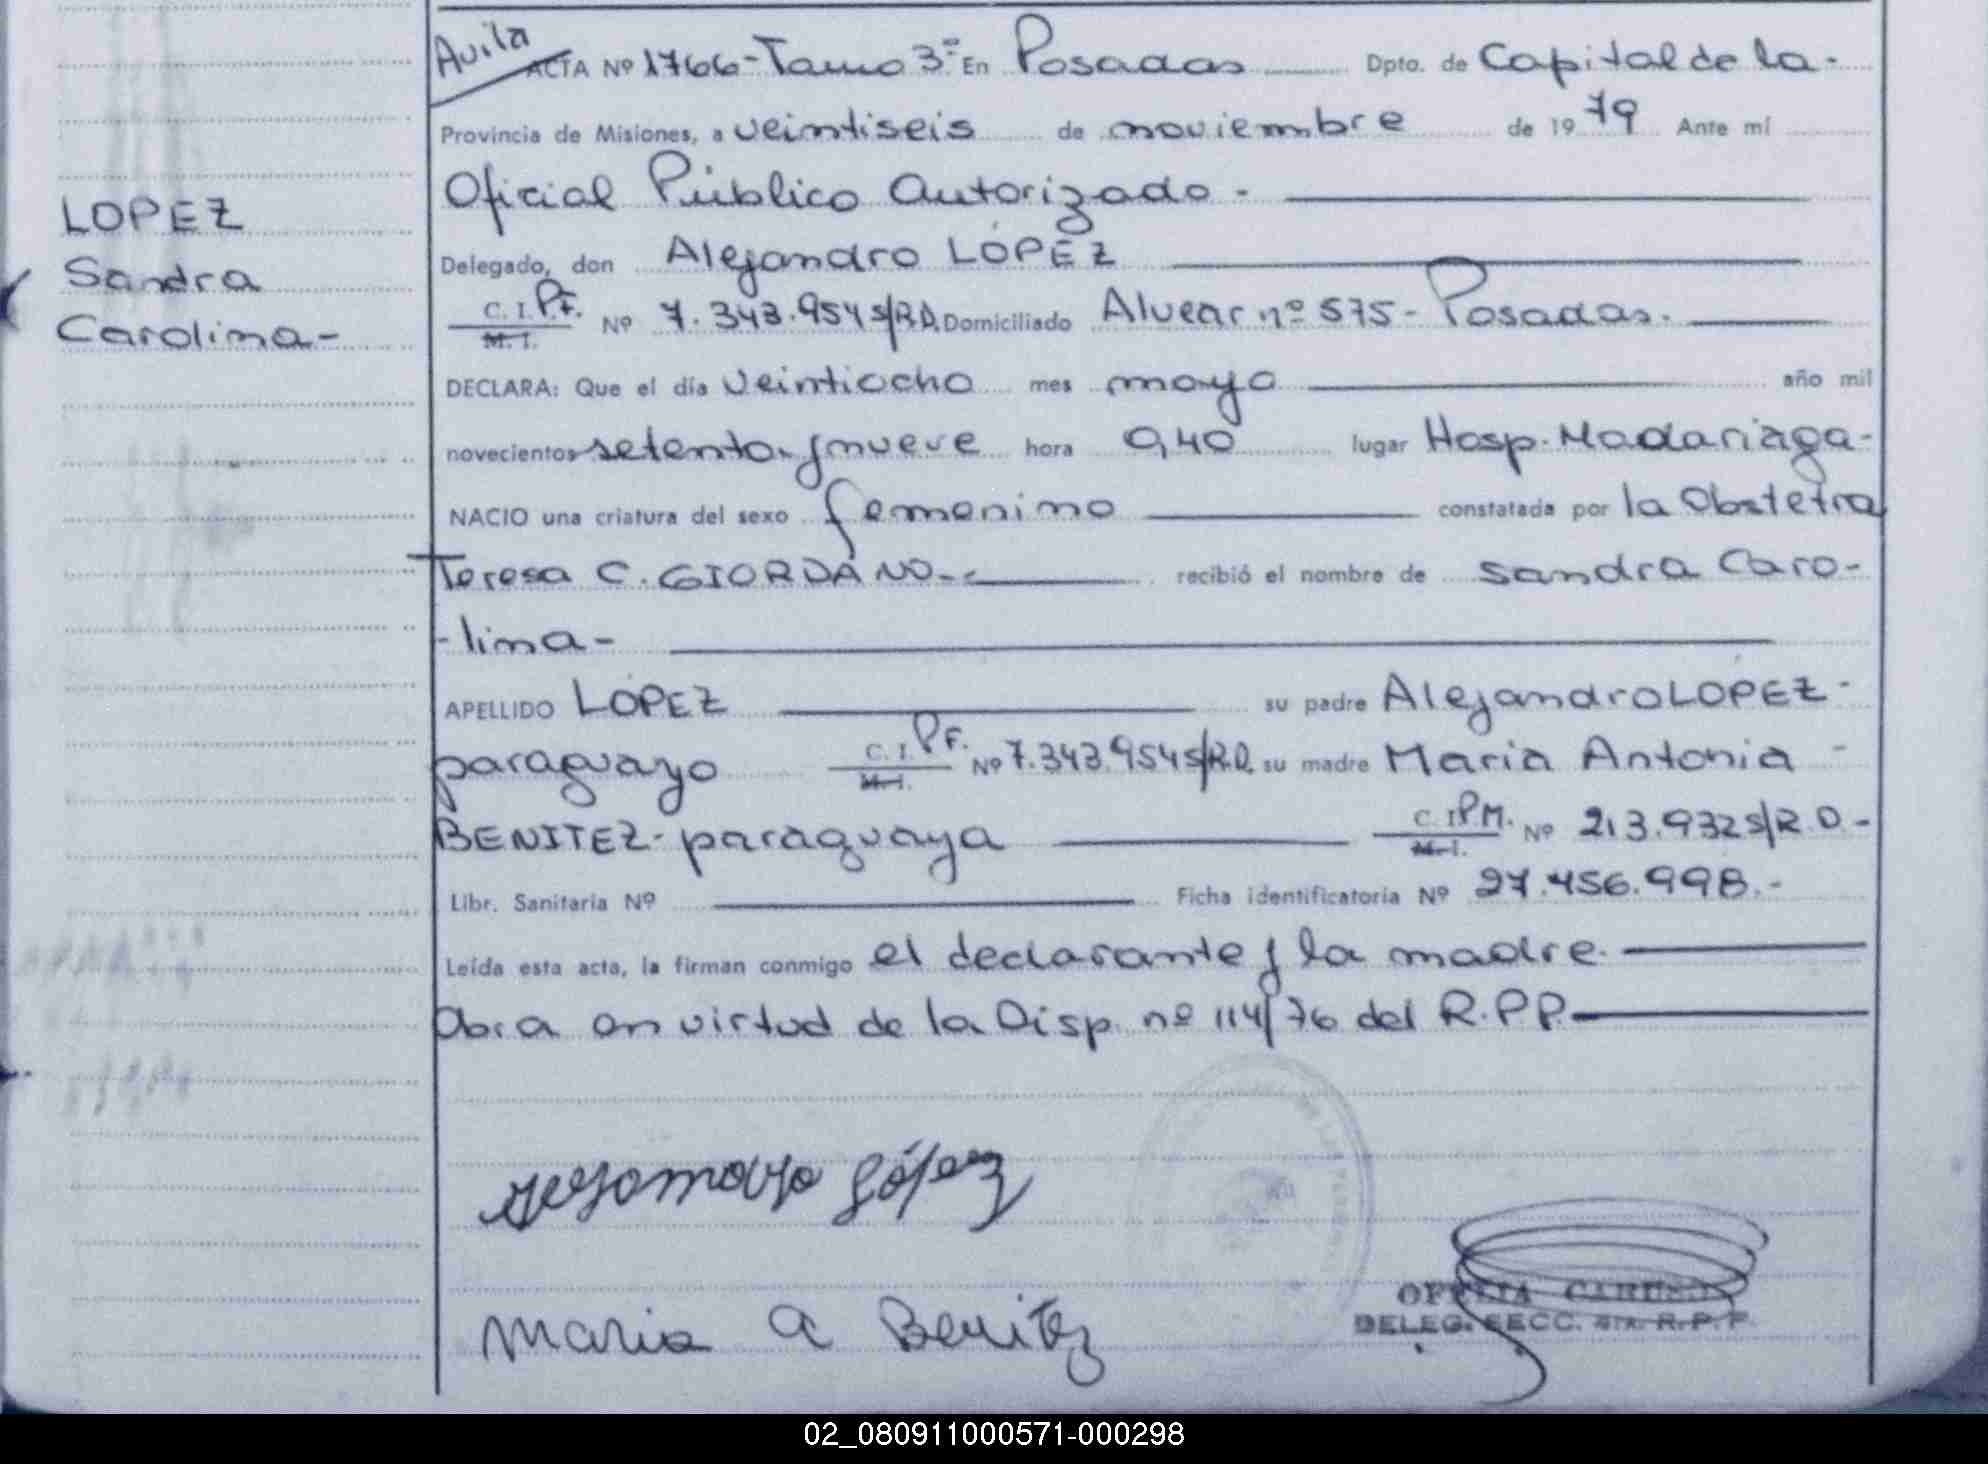 Avila
ACTA Nº 1766-Tomo 3º En Posadas Dpto. de Capital de la-
Provincia de Misiones, a veintiseis de noviembre de 1979 Ante mí
Oficial Público Autorizado -
LOPEZ
Delegado, don Alejandro LÓPEZ
Sandra
C. I. P.F. Nº 7.343.954 s/R.D. Domiciliado Alvear nº 575- Posadas.
M. I.
Carolina-
DECLARA: Que el día veintiocho mes mayo año mil
novecientos setenta y nueve hora 9,40 lugar Hosp. Madariaga-
NACIO una criatura del sexo femenino constatada por la Obstetra
Teresa C. GIORDANO.- recibió el nombre de Sandra Caro-
-lina-
APELLIDO LÓPEZ su padre Alejandro LOPEZ-
paraguayo C. I. P.F. Nº 7.343.954 s/R.D. su madre Maria Antonia -
M. I.
BENITEZ- paraguaya C. I P.M. Nº 213.932 s/R.D.-
M. I.
Libr. Sanitaria Nº Ficha identificatoria Nº 27.456.998.-
Leída esta acta, la firman conmigo el declarante y la madre.
Obra en virtud de la Disp. nº 114/76 del R.P.P.
López
Maria A Benitez
OFELIA CARUSO
DELEG. SECC. 4ta. R.P.P.
02_080911000571-000298